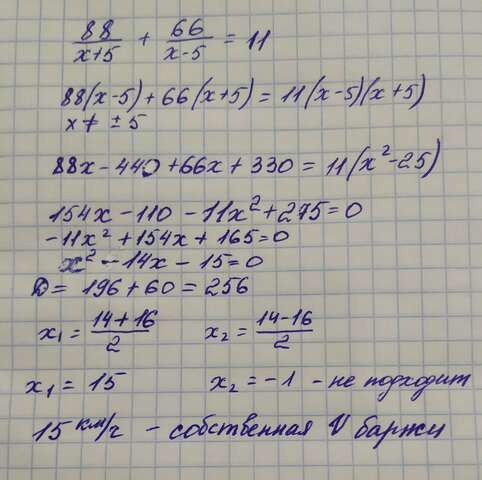 88/(x+5) + 66/(x-5) = 11
88(x-5)+66(x+5)=11(x-5)(x+5)
x≠ ±5
88x-440+66x+330=11(x²-25)
154x-110-11x²+275=0
-11x²+154x+165=0
x²-14x-15=0
D= 196+60=256
x₁=(14+16)/2 x₂=(14-16)/2
x₁=15 x₂=-1 - не подходит
15 км/ч - собственная V баржи